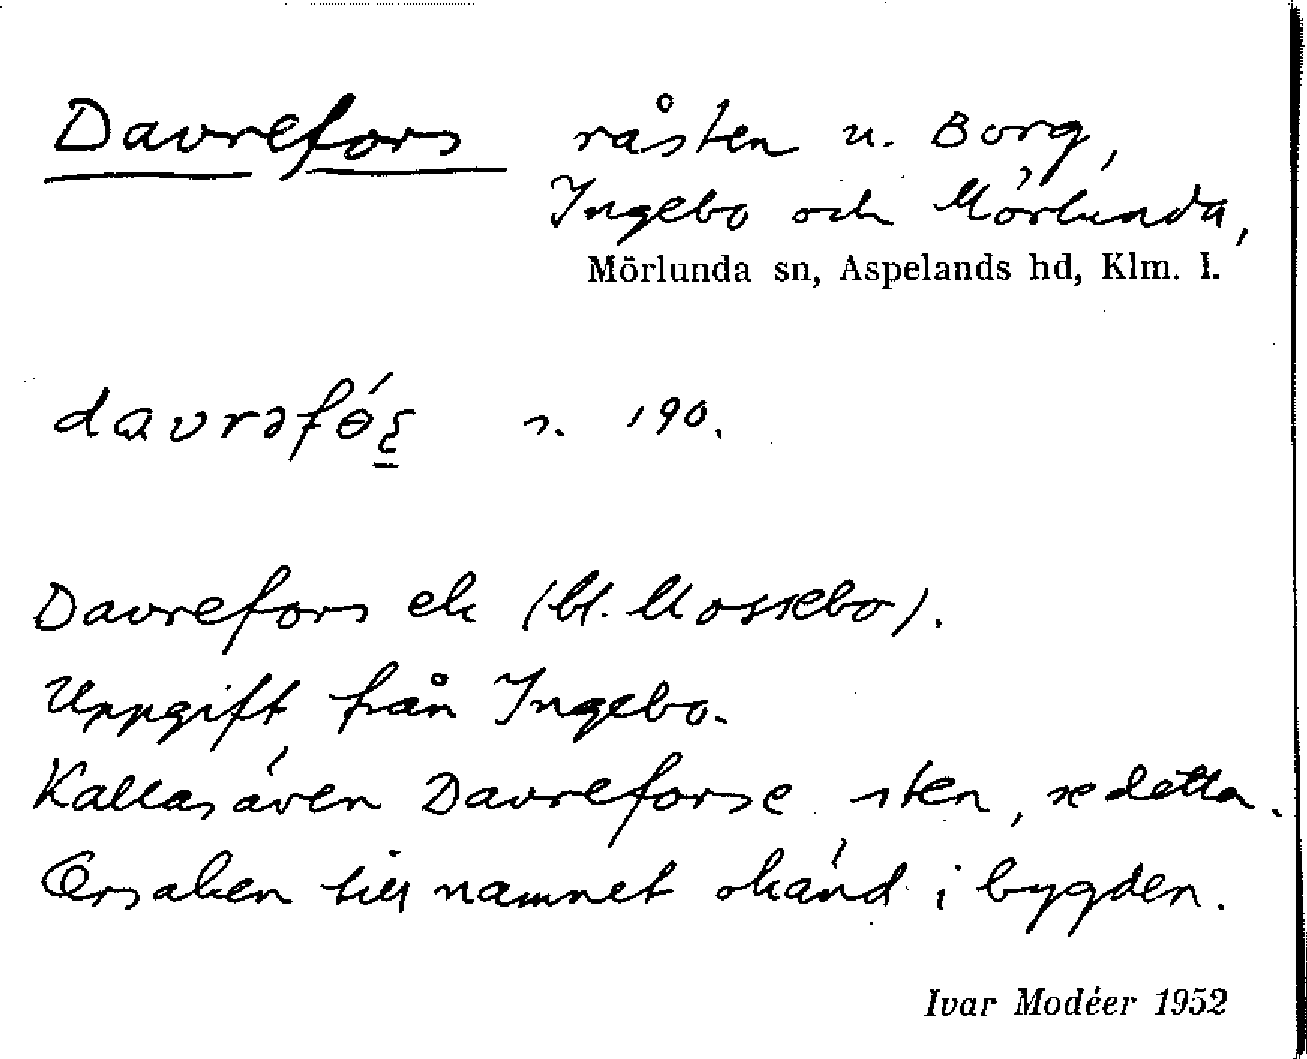 Davrefors råsten u. Borg,
Ingebo och Mörlunda,
Mörlunda sn, Aspelands hd, Klm. l.
s. 190.
Davrefors ek (bl. Mossebo).
Uppgift från Ingebo.
Kallas även Davreforse sten, se detta.
Orsaken till namnet okänd i bygden.
Ivar Modéer 1952